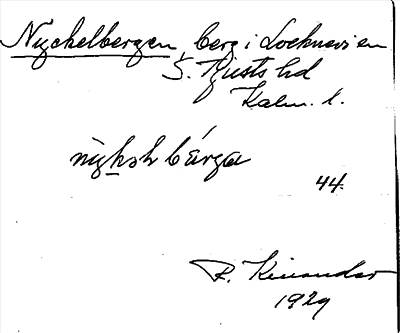 Nyckelbergen, berg i Locknevi sn
S. Tjusts hd
Kalm. l.
bárga
44.
R. Kinander
1929